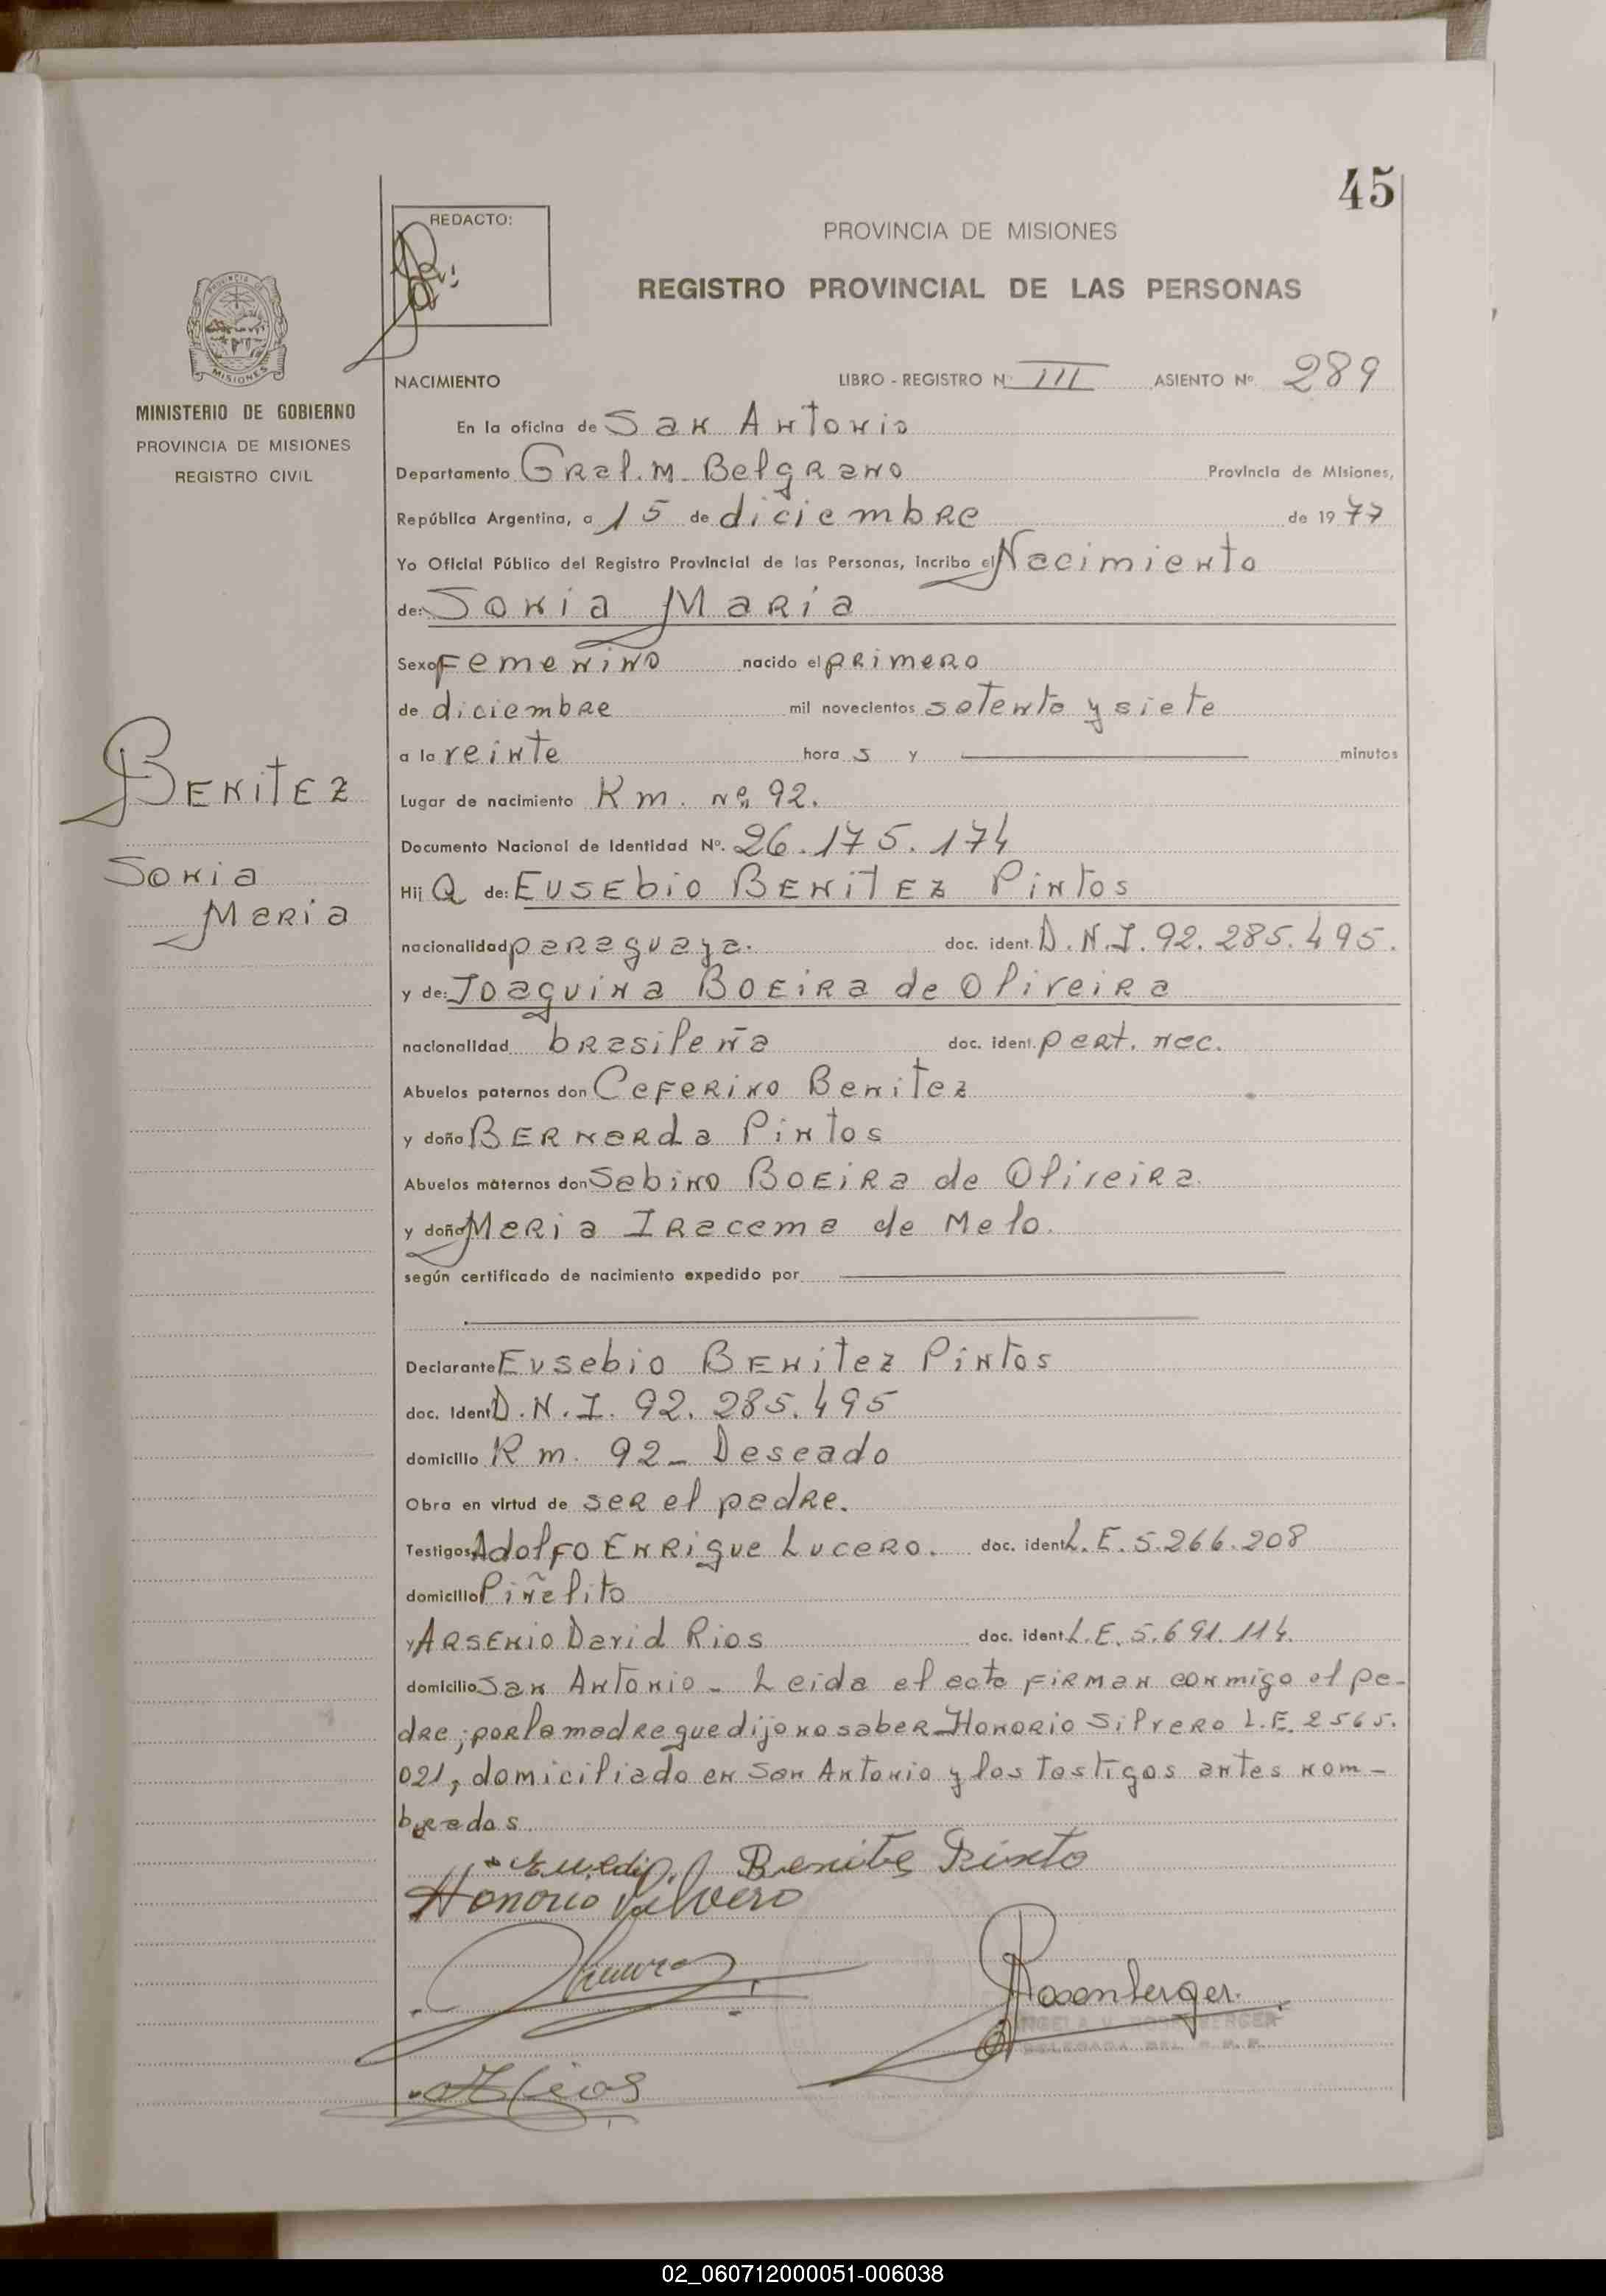 45
REDACTO:
PROVINCIA DE MISIONES
REGISTRO PROVINCIAL DE LAS PERSONAS
MISIONES
MINISTERIO DE GOBIERNO
PROVINCIA DE MISIONES
REGISTRO CIVIL
NACIMIENTO LIBRO - REGISTRO Nº III ASIENTO Nº 289
En la oficina de San Antonio
Departamento Gral. M. Belgrano Provincia de Misiones,
República Argentina, a 15 de diciembre de 1977
Yo Oficial Público del Registro Provincial de las Personas, incribo el Nacimiento
de: Sonia Maria
Sexo Femenino nacido el primero
de diciembre mil novecientos setenta y siete
a la veinte hora s y minutos
Benitez
Sonia
Maria
Lugar de nacimiento Km. nº 92.
Documento Nacional de Identidad Nº. 26.175.174
Hij a de: Eusebio Benitez Pintos
nacionalidad paraguaya. doc. ident. D.N.I. 92.285.495.
y de: Joaquina Boeira de Oliveira
nacionalidad brasileña doc. ident. pert. nac.
Abuelos paternos don Ceferino Benitez
y doña Bernarda Pintos
Abuelos maternos don Sabino Boeira de Oliveira
y doña Maria Iracema de Melo.
según certificado de nacimiento expedido por
Declarante Eusebio Benitez Pintos
doc. Ident D.N.I. 92.285.495
domicilio Km. 92 - Deseado
Obra en virtud de ser el padre.
Testigos Adolfo Enrique Lucero. doc. ident L.E. 5.266.208
domicilio Piñalito
y Arsenio David Rios doc. ident L.E. 5.691.114.
domicilio San Antonio - Leida el acta firman conmigo el pa-
dre; por la madre que dijo no saber Honorio Silvero L.E. 2565.
021, domiciliado en San Antonio y los testigos antes nom-
brados
Benites Pinto
Honorio
Rosenberger.
ANGELA V. ROSENBERGER
DELEGADA DEL R.P.P.
02_060712000051-006038